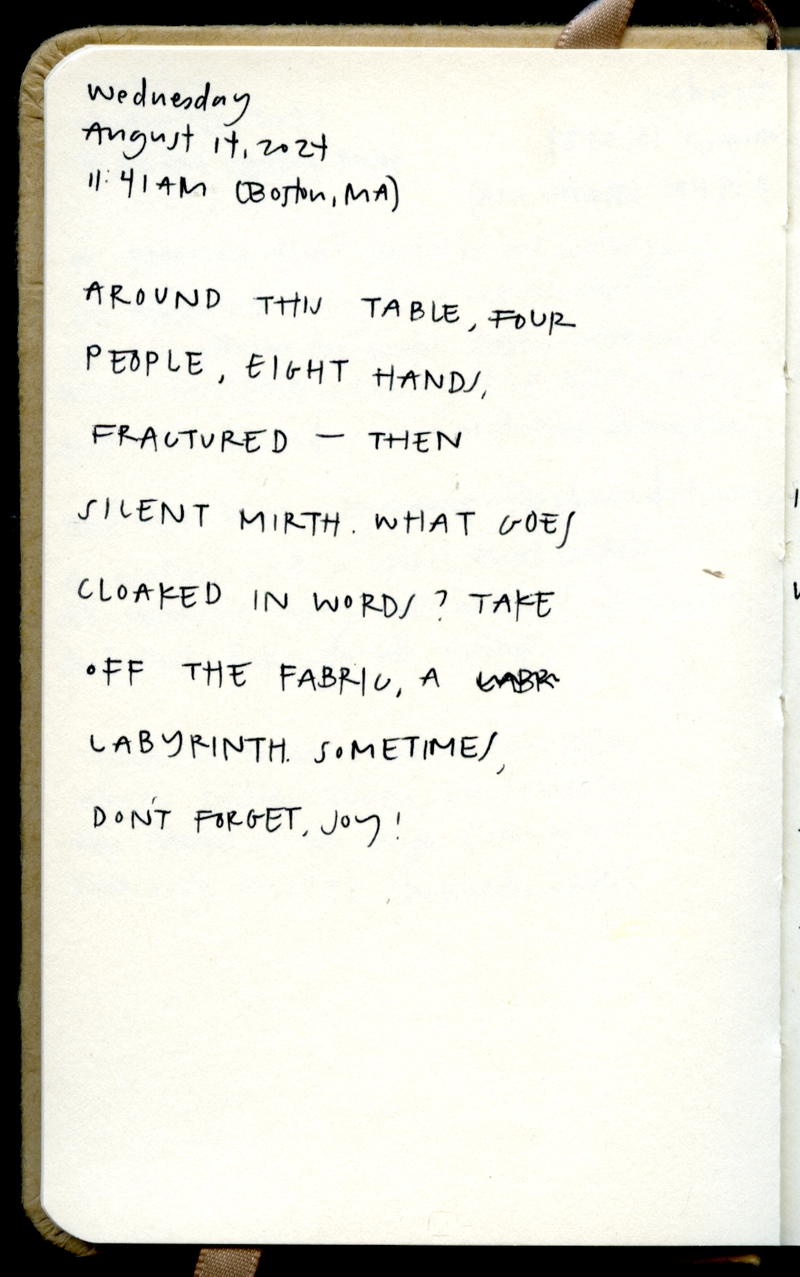 Wednesday
August 14, 2024
11:41 AM (Boston, MA)
AROUND THIS TABLE, FOUR
PEOPLE, EIGHT HANDS,
FRACTURED — THEN
SILENT MIRTH. WHAT GOES
CLOAKED IN WORDS? TAKE
OFF THE FABRIC, A
LABYRINTH. SOMETIMES,
DON'T FORGET, JOY!